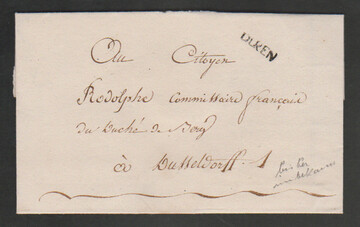 DUREN
Au Citoyen
Rodolphe Commissaire français
du Duché de Berg
à Dusseldorff. 1